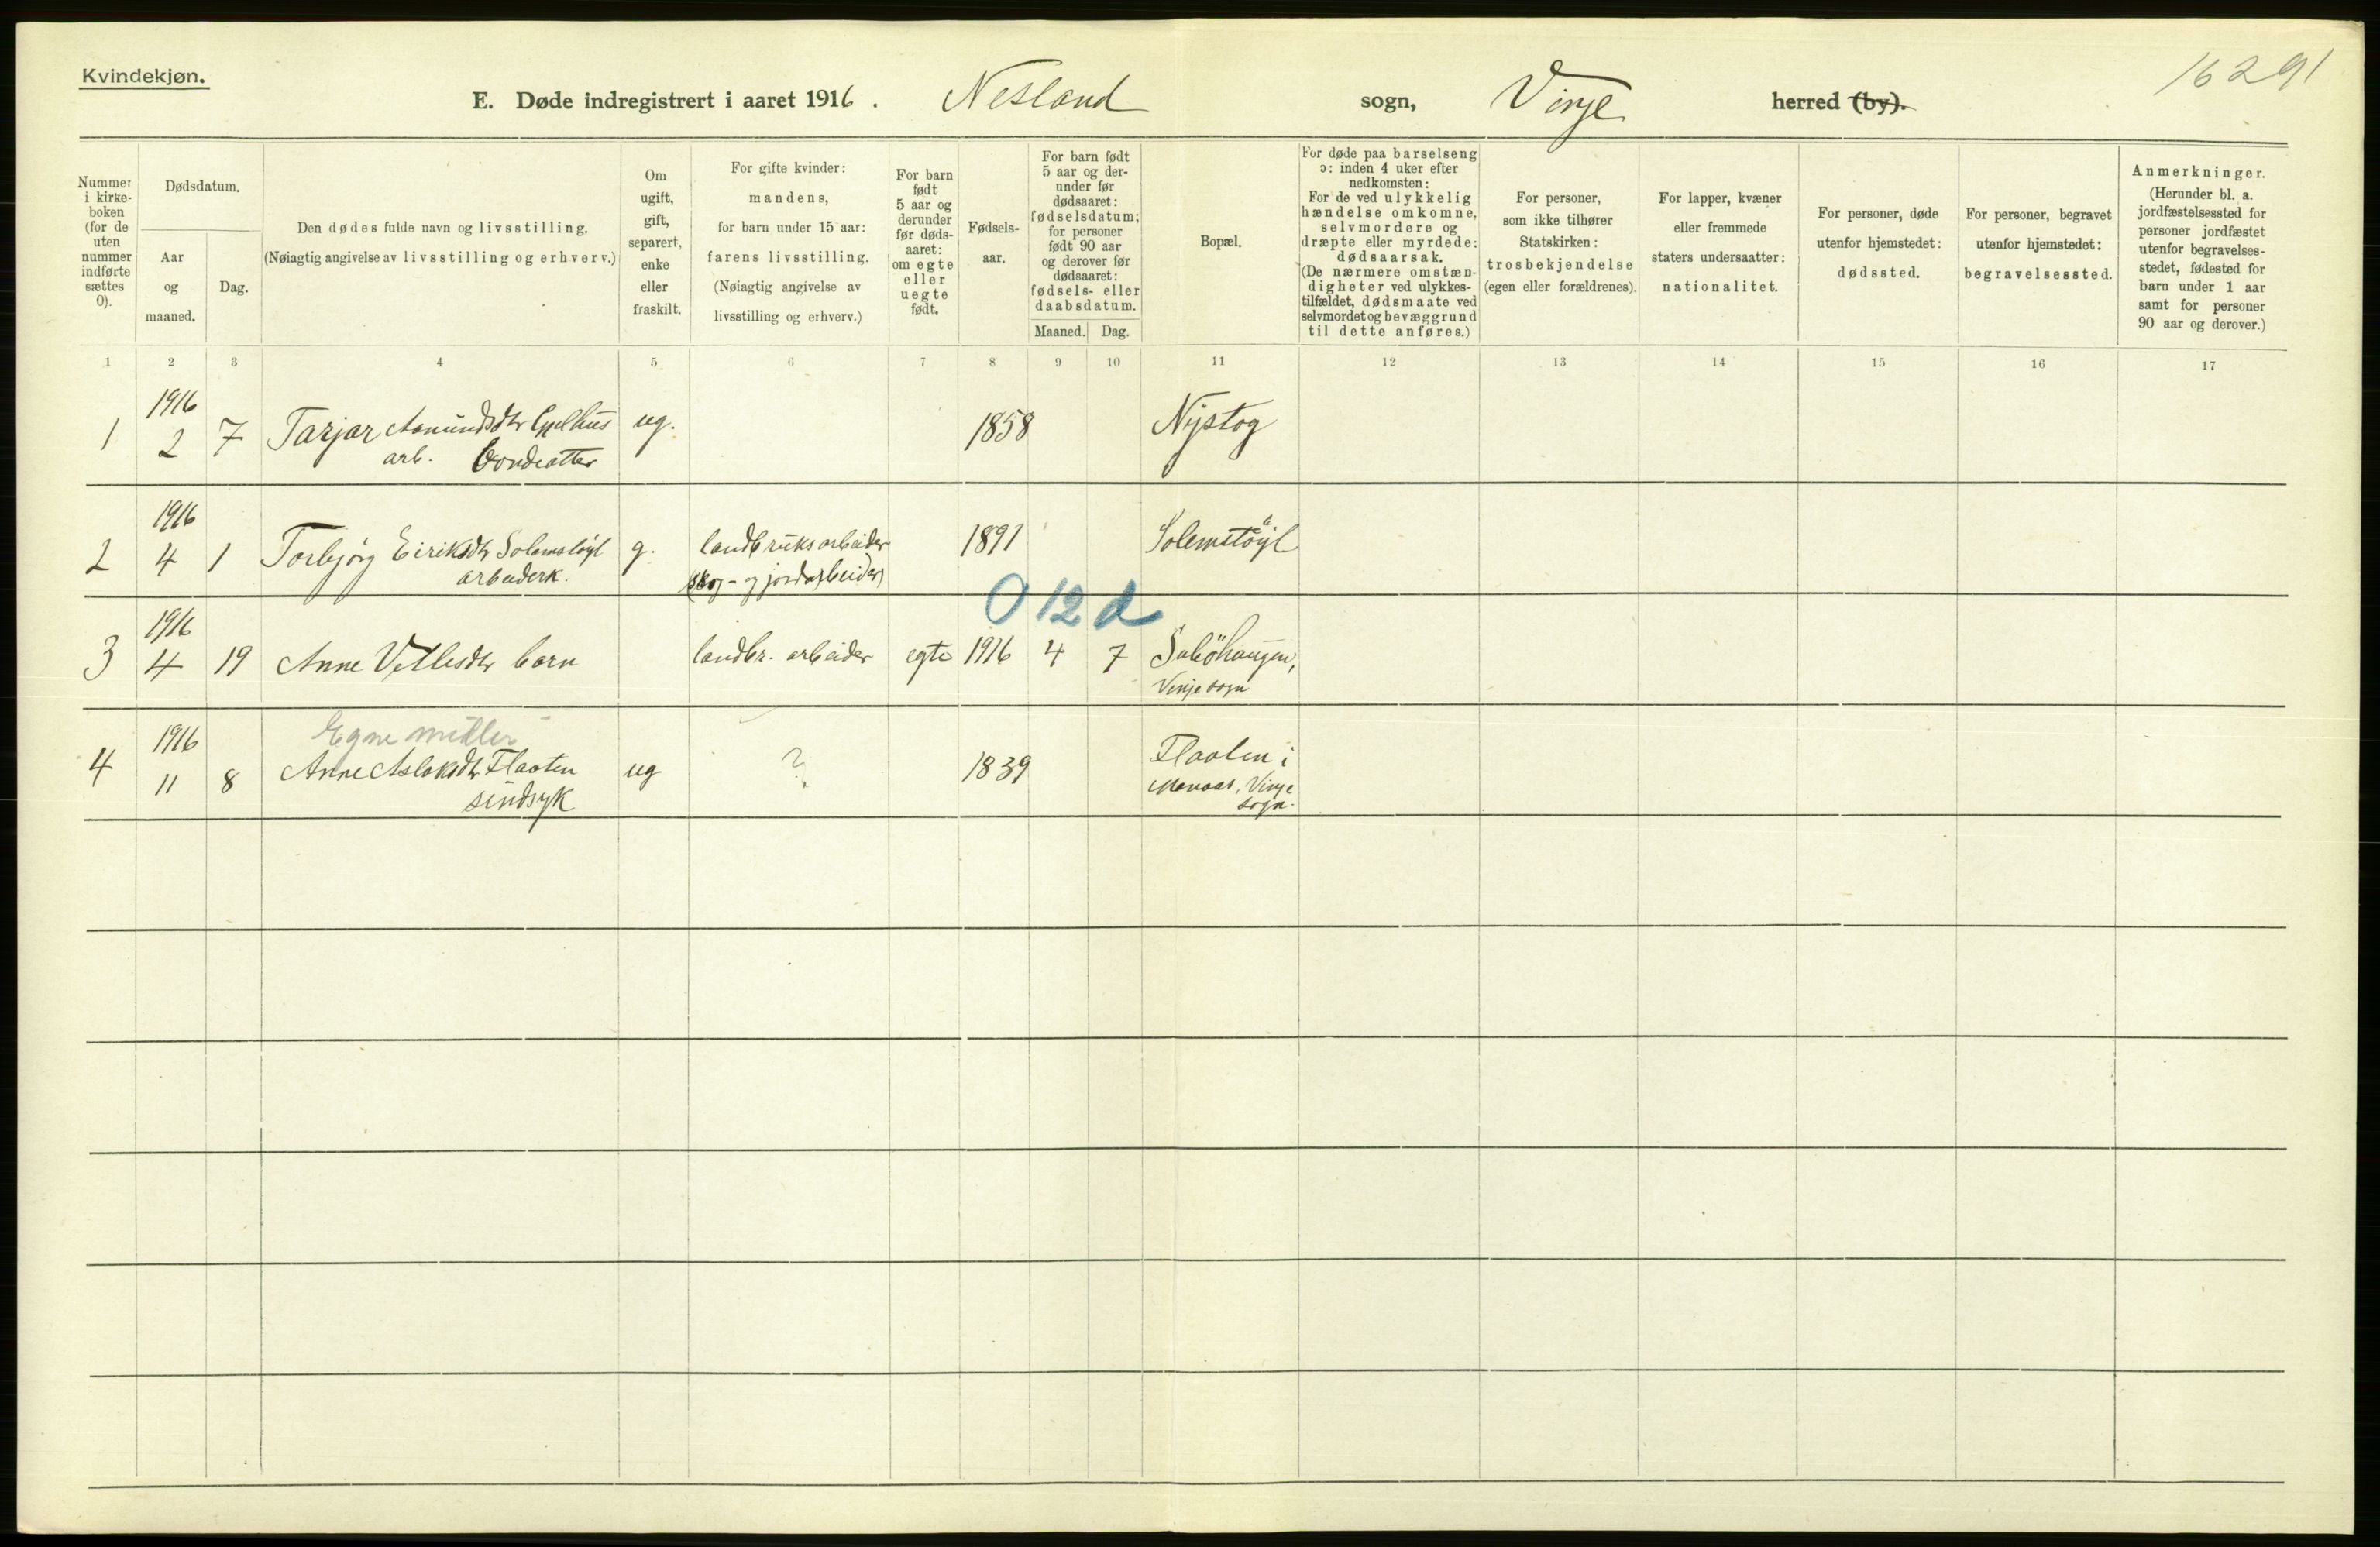 Kvindekjøn.
16291
E. Døde indregistrert i aaret 1916. Nesland sogn, Vinje herred (by).
Nummer i kirkeboken (for de uten nummer indførte sættes 0).
Dødsdatum.
Aar og maaned.
Dag.
Den dødes fulde navn og livsstilling.
(Nøiagtig angivelse av livsstilling og erhverv.)
Om ugift, gift, separert, enke eller fraskilt.
For gifte kvinder: mandens, for barn under 15 aar: farens livsstilling.
(Nøiagtig angivelse av livsstilling og erhverv.)
For barn født 5 aar og derunder før dødsaaret: om egte eller uegte født.
Fødselsaar.
For barn født 5 aar og derunder før dødsaaret: fødselsdatum; for personer født 90 aar og derover før dødsaaret: fødsels- eller daabsdatum.
Maaned. Dag.
Bopæl.
For døde paa barselseng ɔ: inden 4 uker efter nedkomsten:
For de ved ulykkelig hændelse omkomne, selvmordere og dræpte eller myrdede: dødsaarsak.
(De nærmere omstændigheter ved ulykkestilfældet, dødsmaate ved selvmordet og bevæggrund til dette anføres.)
For personer, som ikke tilhører Statskirken: trosbekjendelse (egen eller forældrenes).
For lapper, kvæner eller fremmede staters undersaatter: nationalitet.
For personer, døde utenfor hjemstedet: dødssted.
For personer, begravet utenfor hjemstedet: begravelsessted.
Anmerkninger.
(Herunder bl. a. jordfæstelsessted for personer jordfæstet utenfor begravelsesstedet, fødested for barn under 1 aar samt for personer 90 aar og derover.)
1 2 3 4 5 6 7 8 9 10 11 12 13 14 15 16 17
1916
1 2 7 Tarjar Aamundsdtr ug. 1858 Nystog
arb.
1916
2 4 1 Torbjørg Eiriksdtr Solemstøyl g. landbruksarbeider 1891 Solemstøyl
arbeiderk. (skog- og jordarbeider)
0 12 d
1916
3 4 19 Anne Vetlesdtr barn landbr. arbeider egte 1916 4 7
Vinje sogn
Egne midler
1916
4 11 8 Anne Aslaksdtr Flaaten ug ? 1839 Flaaten i
sindsyk Vinje
sogn.